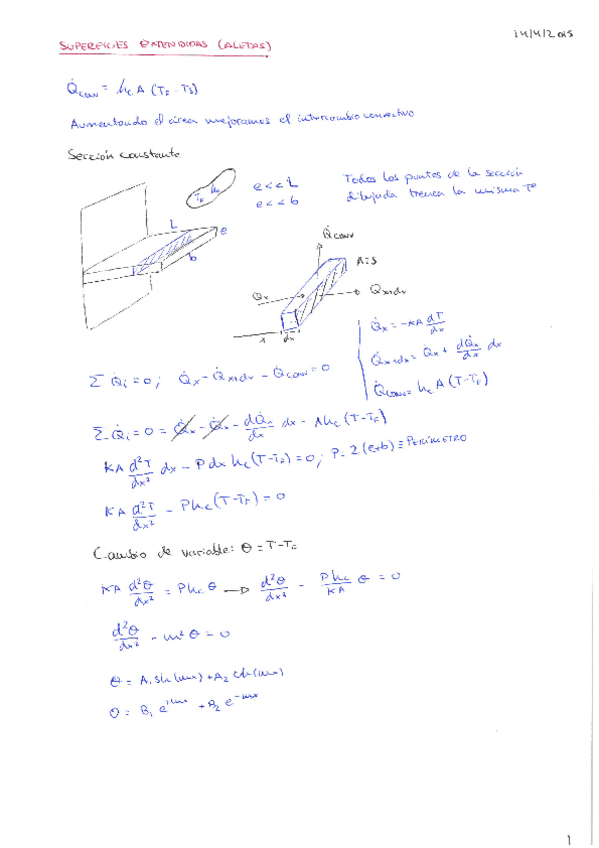 14/4/2015
SUPERFICIES EXTENDIDAS (ALETAS)
Q̇conv = hc A (TF - TS)
Aumentando el área mejoramos el intercambio convectivo
Sección constante
TF hc
e << L
e << b
Todos los puntos de la sección
dibujada tienen la misma Tª
L
e
b
Q̇conv
A=S
Qx
Qx+dx
x
dx
Q̇x = -KA dT/dx
Q̇x+dx = Q̇x + dQ̇x/dx dx
Q̇conv = hc A (T-TF)
Σ Q̇i = 0; Q̇x - Q̇x+dx - Q̇conv = 0
Σ Q̇i = 0 = Q̇x - Q̇x - dQ̇x/dx dx - Ahc (T-TF)
KA d²T/dx² dx - P dx hc (T-TF) = 0; P = 2(e+b) ≡ PERÍMETRO
KA d²T/dx² - Phc (T-TF) = 0
Cambio de variable: θ = T-TF
KA d²θ/dx² = Phc θ → d²θ/dx² - Phc/KA θ = 0
d²θ/dx² - m² θ = 0
θ = A1 sh(mx) + A2 ch(mx)
θ = B1 e^mx + B2 e^-mx
1